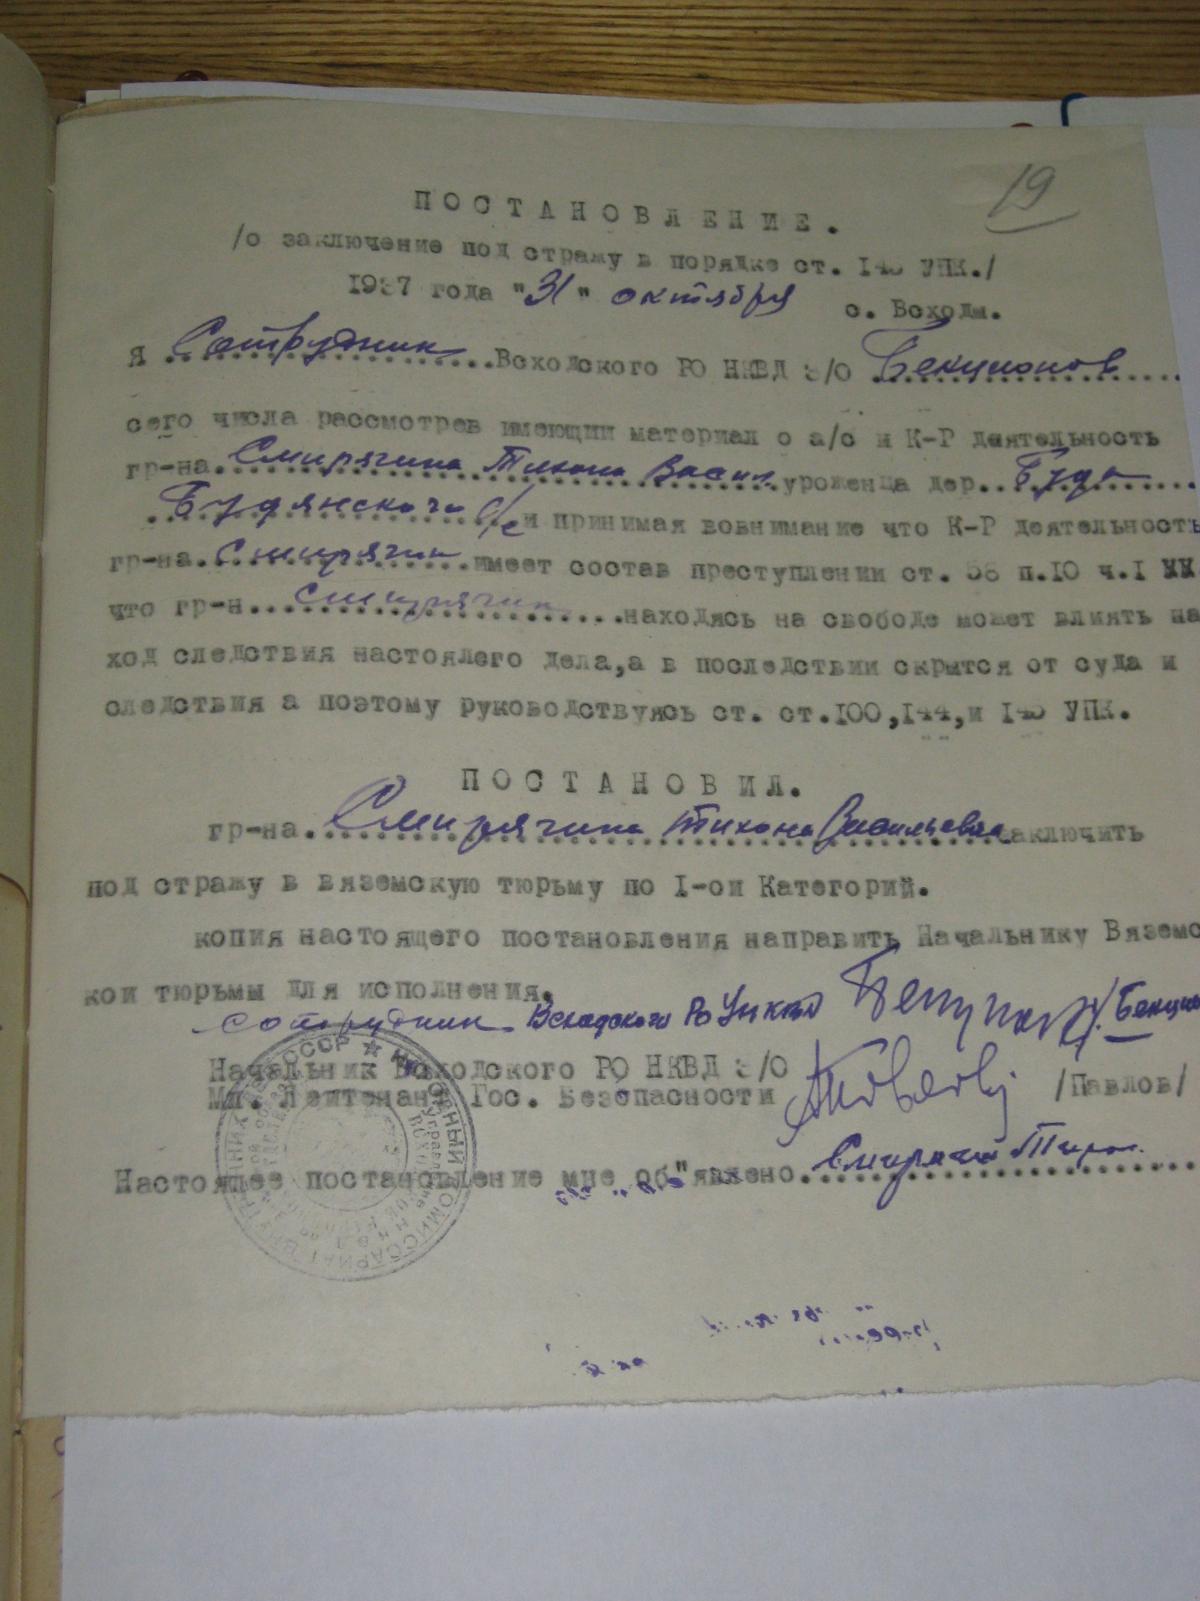 19
ПОСТАНОВЛЕНИЕ.
/о заключение под стражу в порядке ст. 145 УПК./
1937 года "31" октября с. Всходы.
Я Сотрудник Всходского РО НКВД З/О
сего числа рассмотрев имеющии материал о а/с и К-Р деятельность
гр-на. Смирягина Тихона Васил уроженца дер. Буда
Будянского с/с и принимая вовнимание что К-Р деятельность
гр-на. Смирягин имеет состав преступлении ст. 58 п.10 ч.I
что гр-н Смирягин находясь на свободе может влиять на
ход следствия настоялего дела, а в последствии скрытся от суда и
следствия а поэтому руководствуясь ст. ст.100,144,и 145 УПК.
ПОСТАНОВИЛ.
гр-на. Смирягина Тихона Васильевича заключить
под стражу в вяземскую тюрьму по I-ои Категорий.
копия настоящего постановления направить Начальнику Вяземс
кои тюрьмы для исполнения.
сотрудник Всходского РО УНКВД
Начальник Всходского РО НКВД З/О
Мл. Лейтенант Гос. Безопасности /Павлов/
Настоящее постановление мне об"явлено. Смирягин